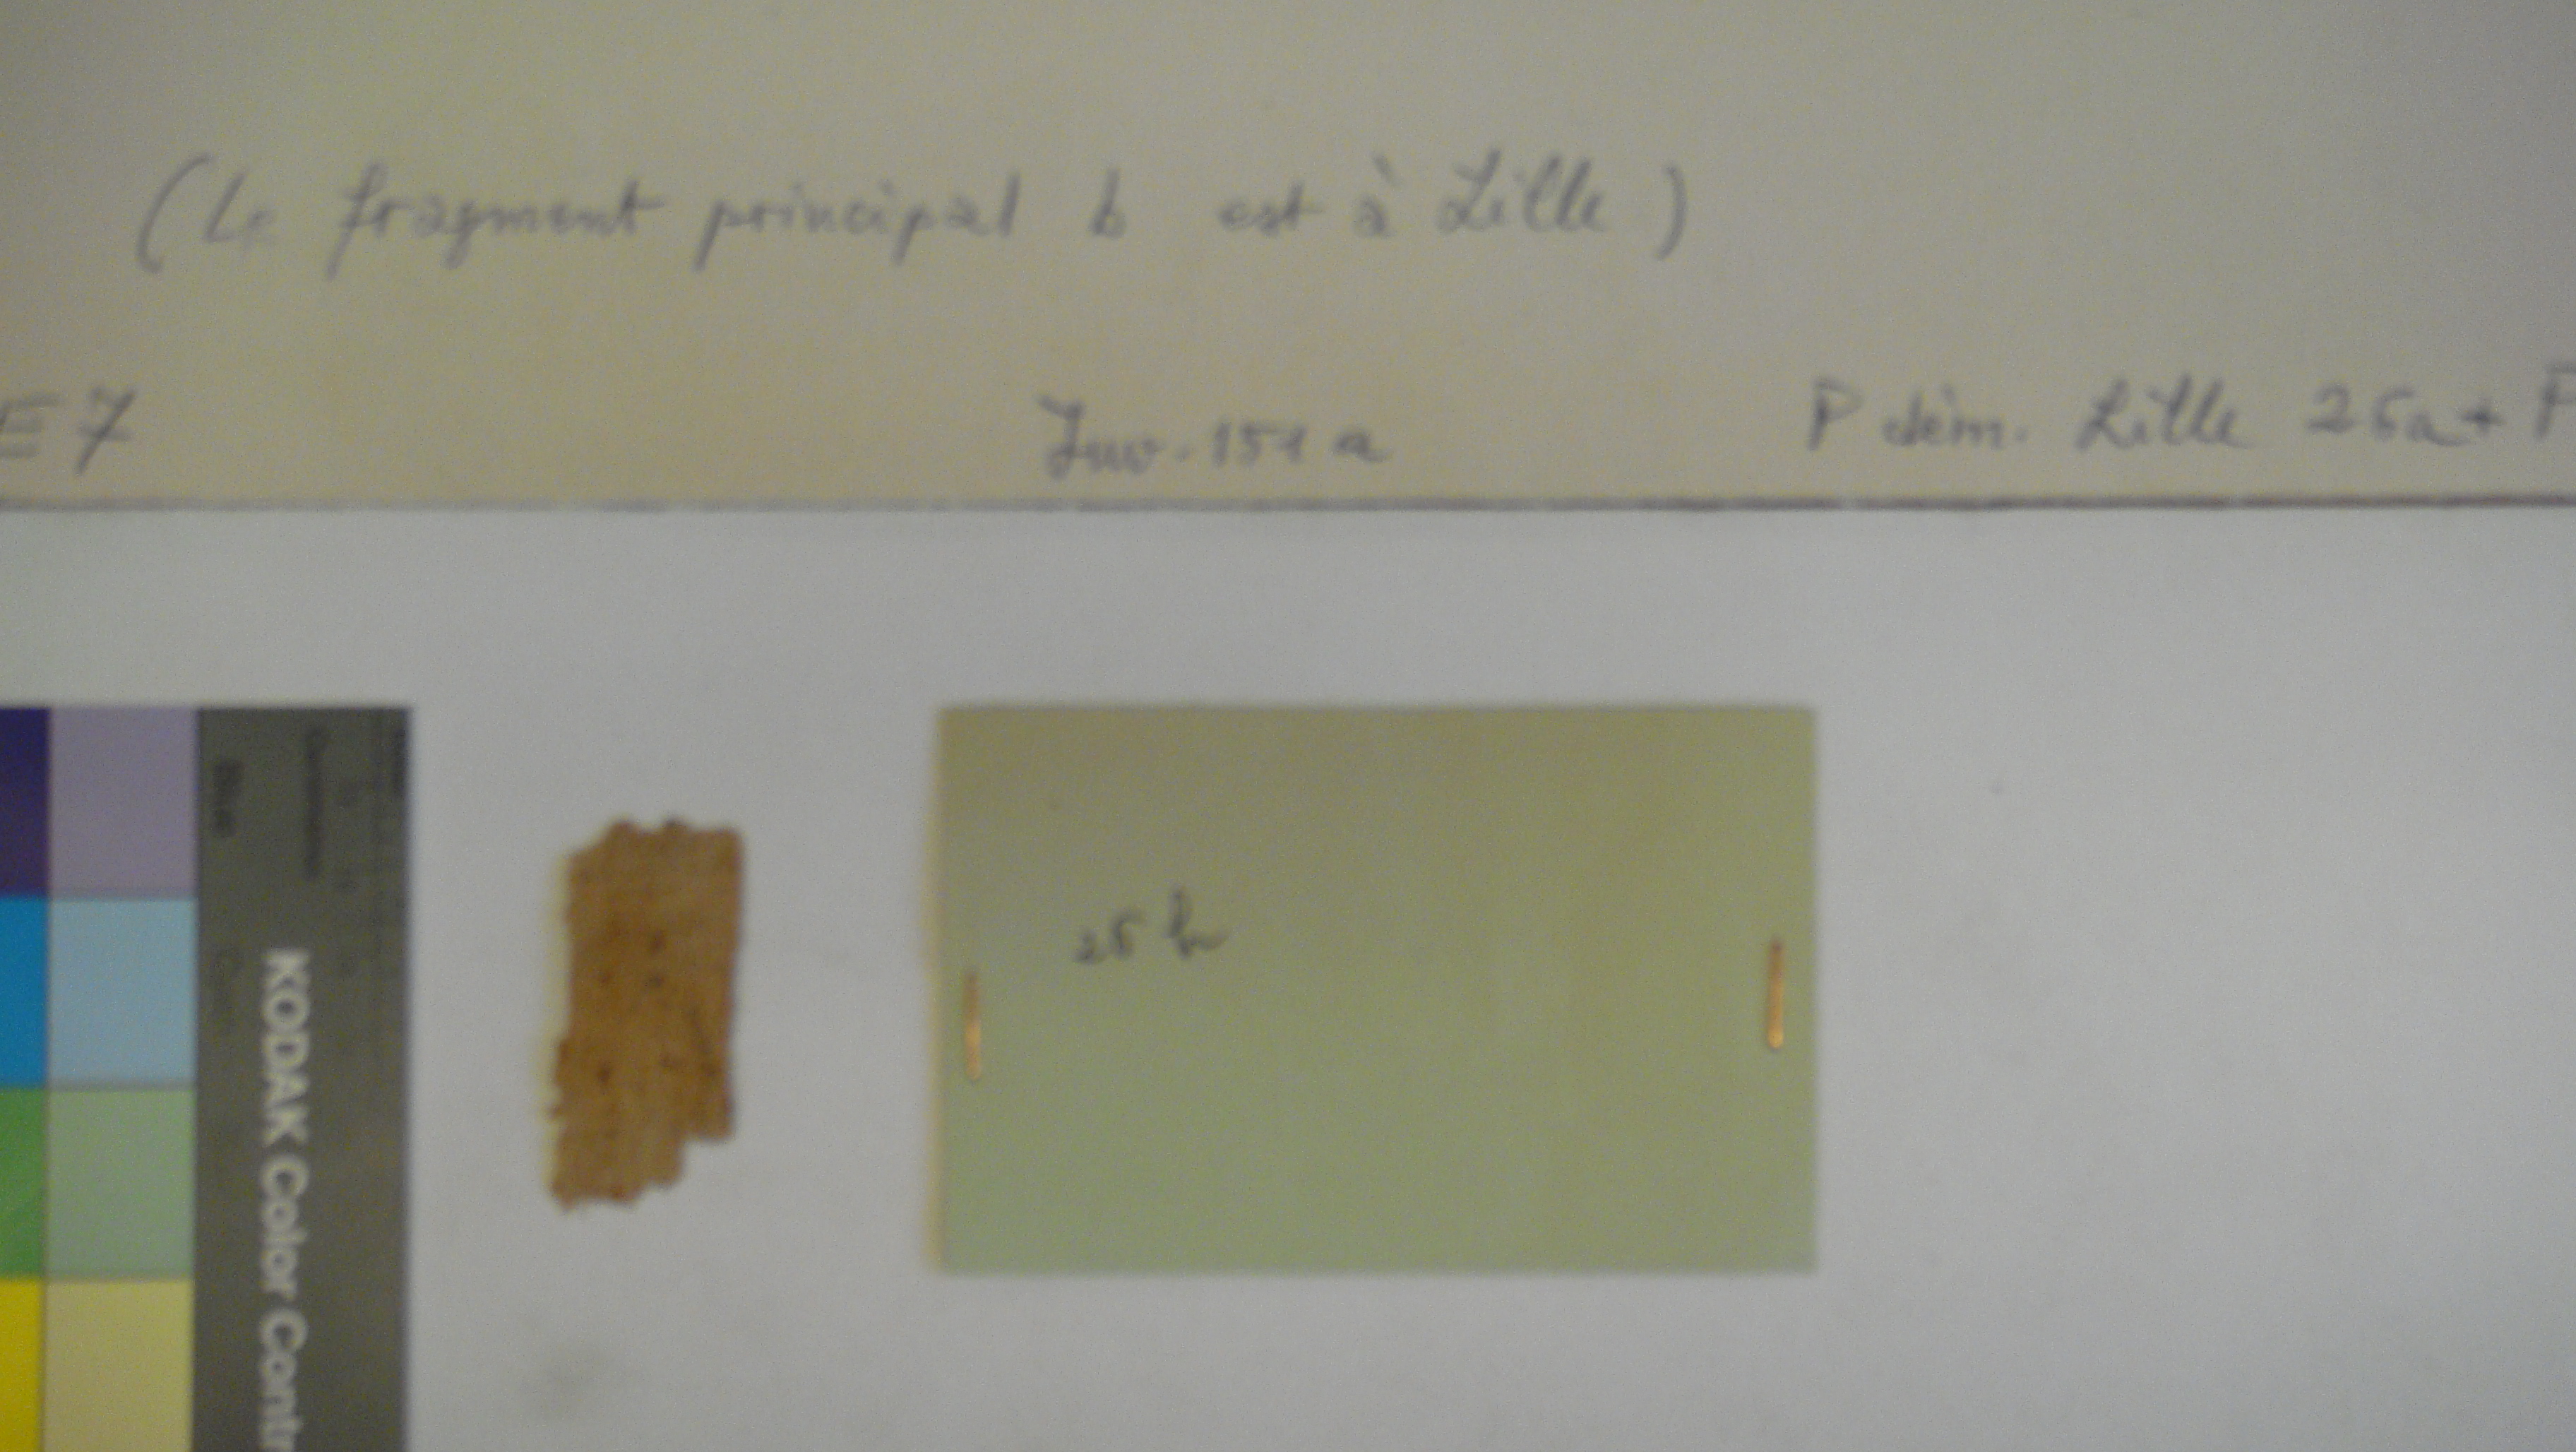 (Le fragment principal b est à Lille)
E7 Inv. 151 a P dém. Lille 25a +
25 b
KODAK Color Contr
Blue